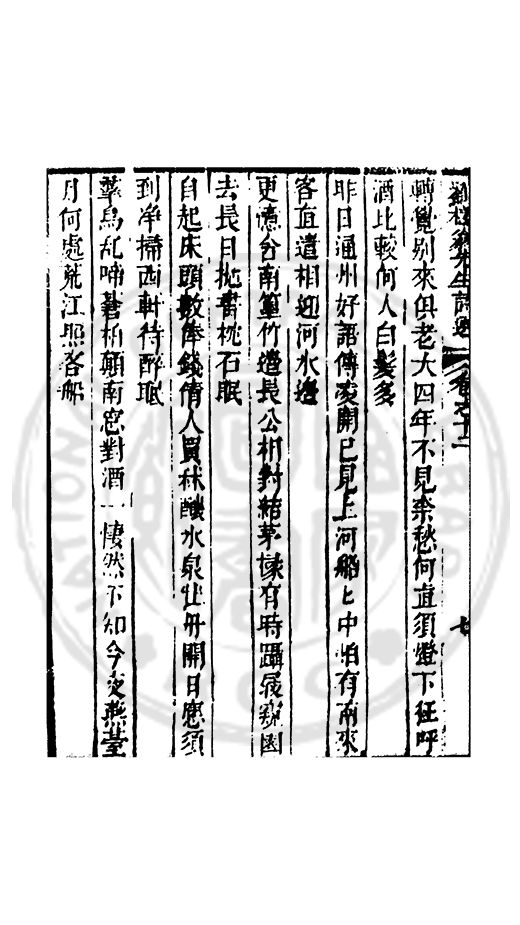 劉槎翁先生詩選 卷之十二 七
轉覺別來俱老大四年不見柰愁何直須燈下狂呼
酒比較何人白髮多
昨日通州好語傳凌開已見上河船船中怕有南來
客直遣相迎河水邊
更憶谷南篁竹邊長公相對結茅椽有時躡屐窺園
去長日抛書枕石眠
自起床頭數俸錢倩人買秫釀水泉牡丹開日應須
到净掃西軒待醉眠
羣烏亂啼蒼柏顛南窓對酒一悽然不知今夜燕臺
月何處荒江照客船